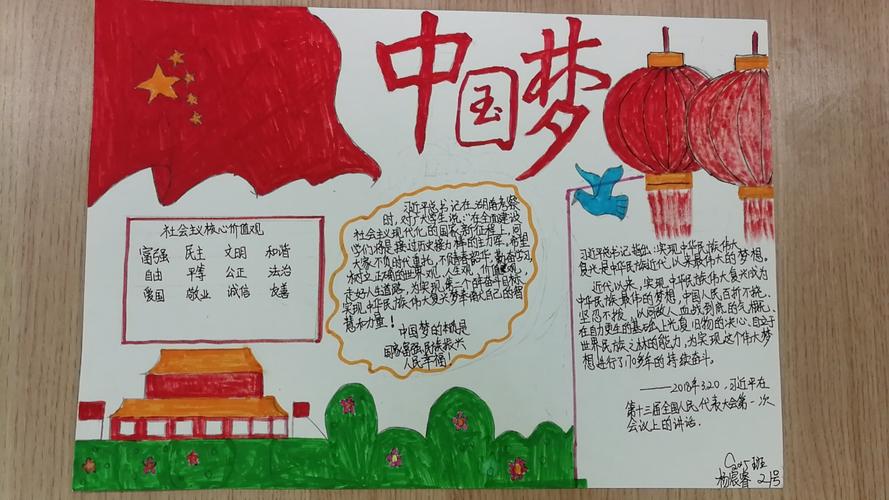 中国梦
社会主义核心价值观
富强 民主 文明 和谐
自由 平等 公正 法治
爱国 敬业 诚信 友善
习近平总书记在湖南考察
时,对广大学生说:"在全面建设
社会主义现代化的国家新征程上,同
学们将是接过历史接力棒的主力军,希望
大家不负时代重托,不负青春韶华,勤奋学习
树立正确的世界观、人生观、价值观,
走好人生道路,为实现第二个百年奋斗目标
实现中华民族伟大复兴梦奉献自己的智
慧和力量!
中国梦的本质是
国家富强民族振兴
人民幸福!
习近平总书记指出:实现中华民族伟大
复兴是中华民族近代以来最伟大的梦想。
近代以来,实现中华民族伟大复兴成为
中华民族最伟的梦想,中国人民百折不挠、
坚忍不拔,以同敌人血战到底的气概、
在自力更生的基础上光复旧物的决心、自立于
世界民族之林的能力,为实现这个伟大梦
想进行了170多年的持续奋斗。
——2018年3.20,习近平在
第十三届全国人民代表大会第一次
会议上的讲话。
班
杨宸睿 21号